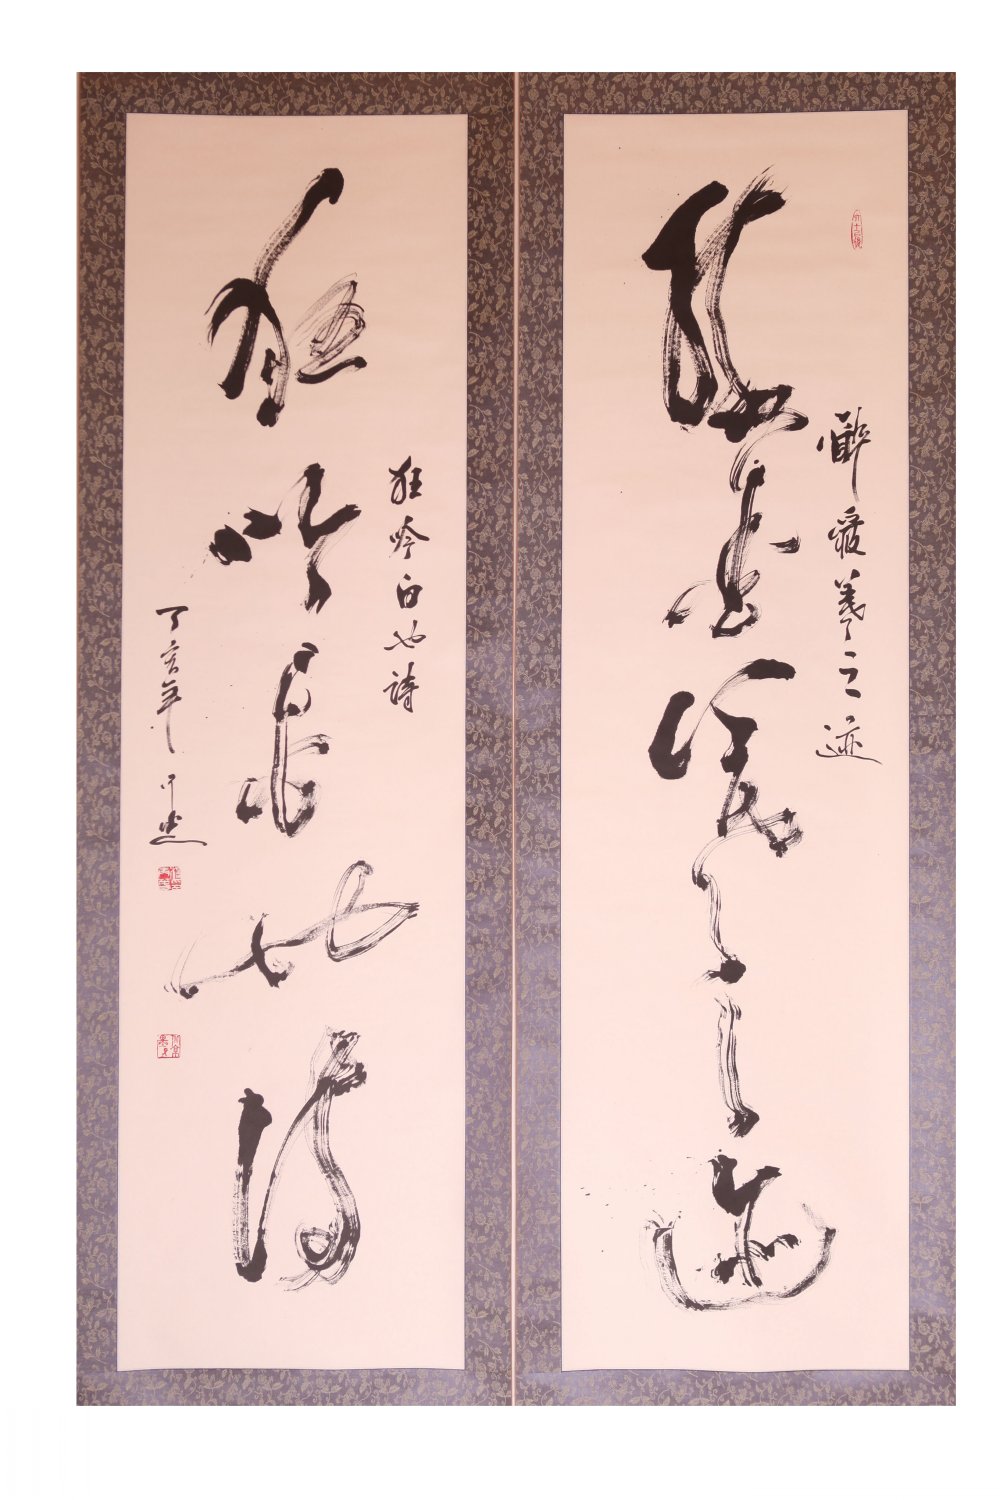 醉愛羲之迹
醉愛羲之迹
狂吟白也詩
狂吟白也詩
丁亥年